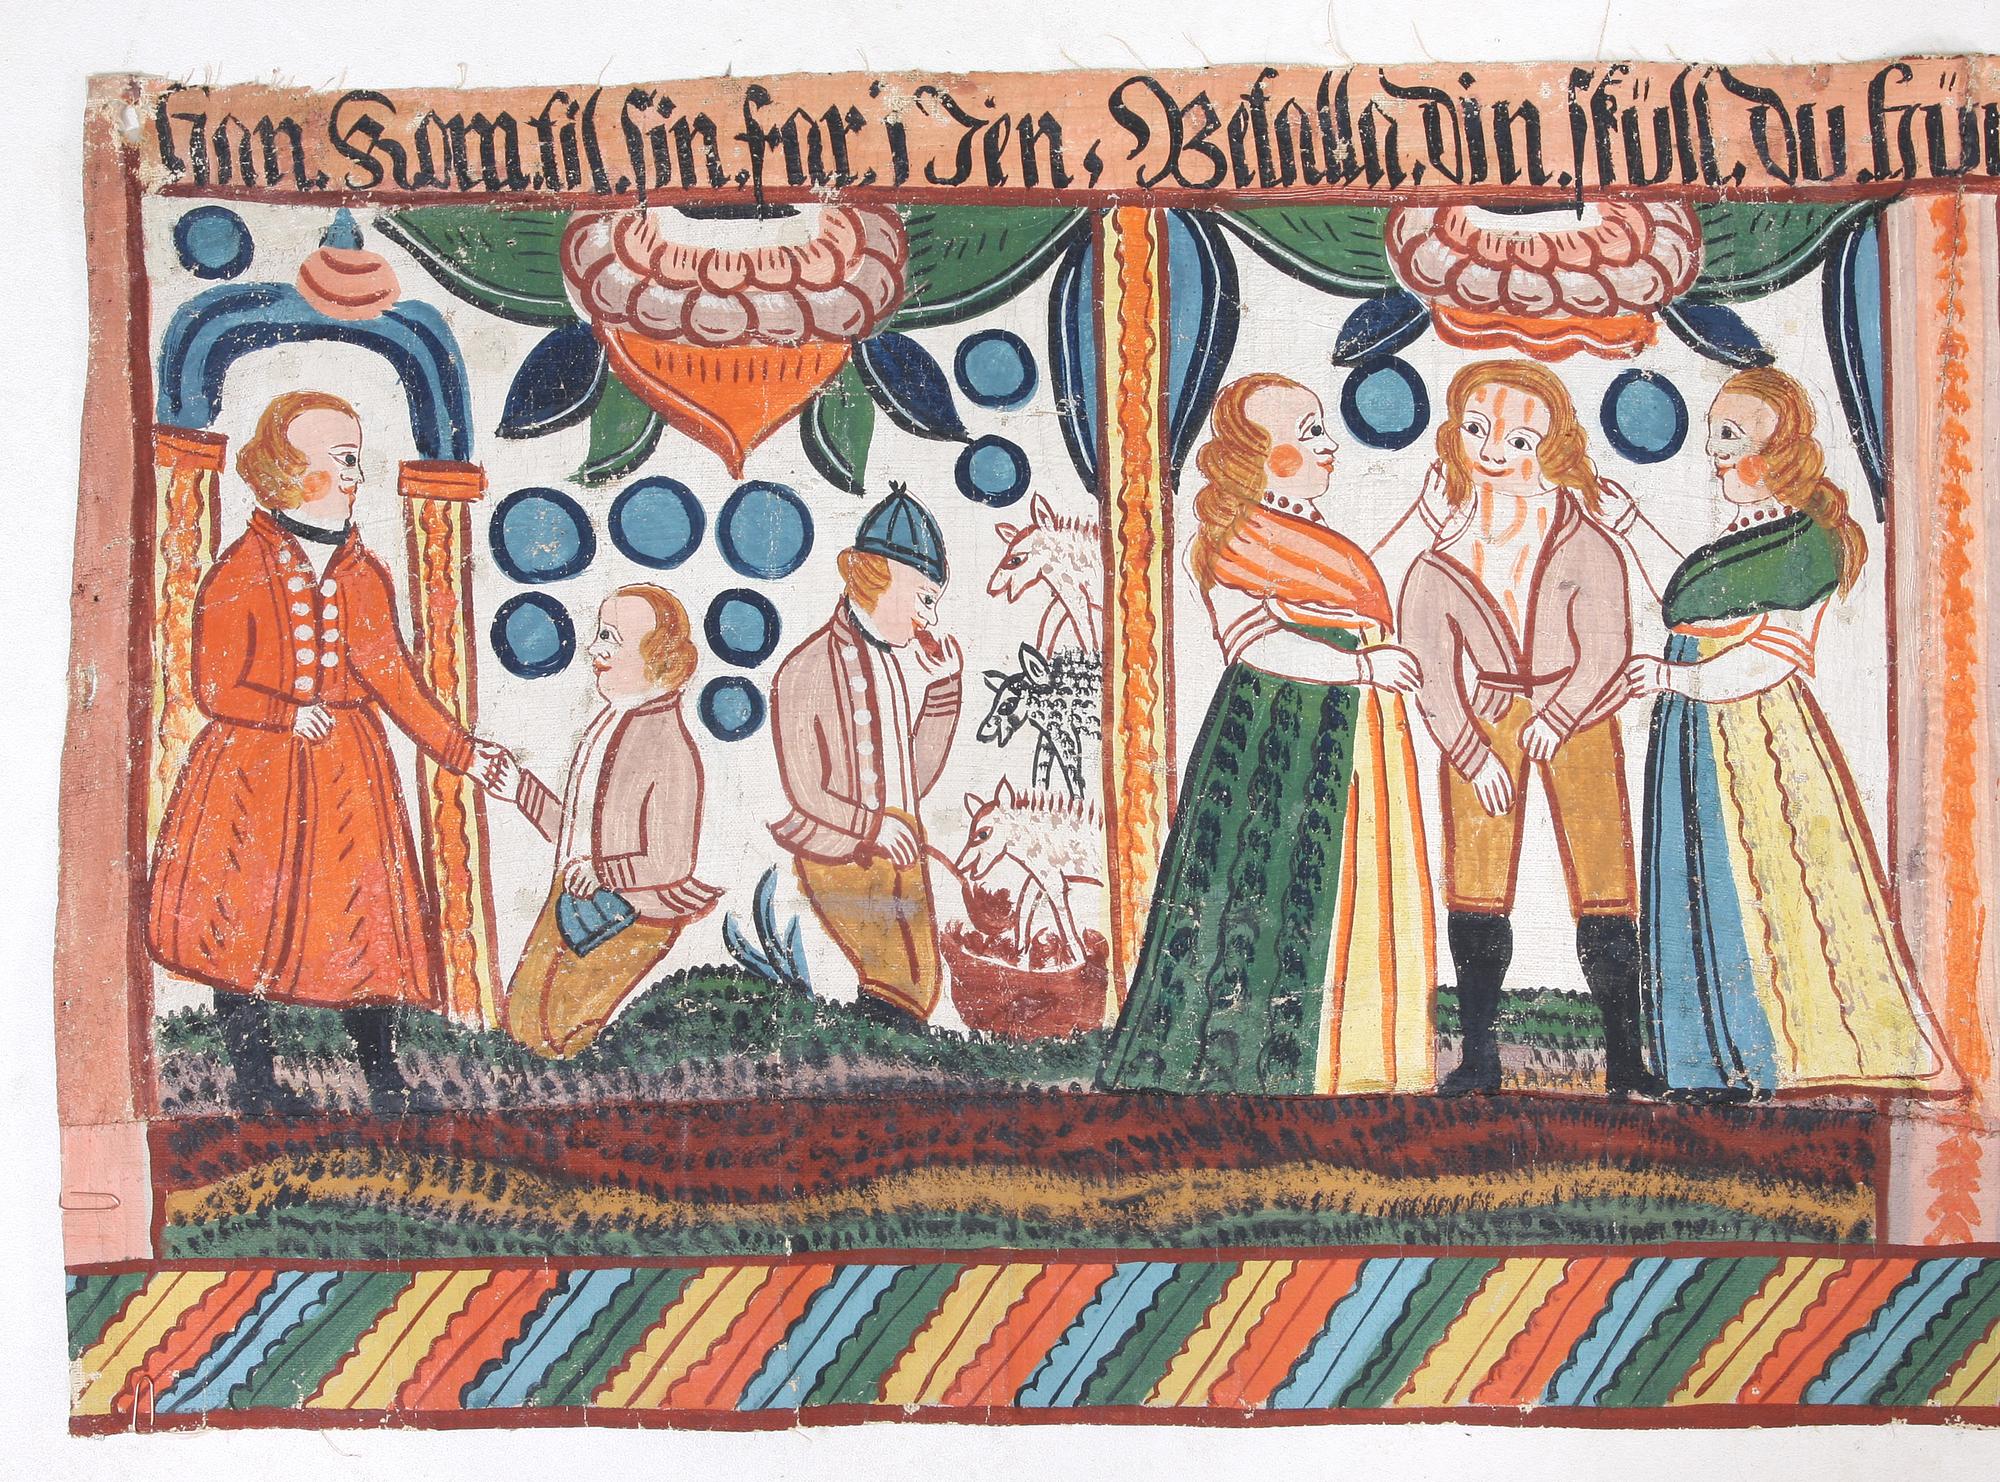 Han. Kom.til.sin.far.i Jen, Betalla.din.sküll.du.